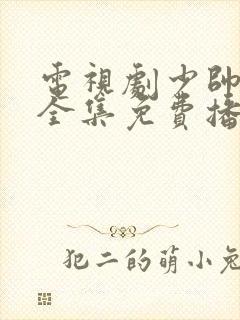 電視劇少帥
全集免費播
犯二的萌小兔